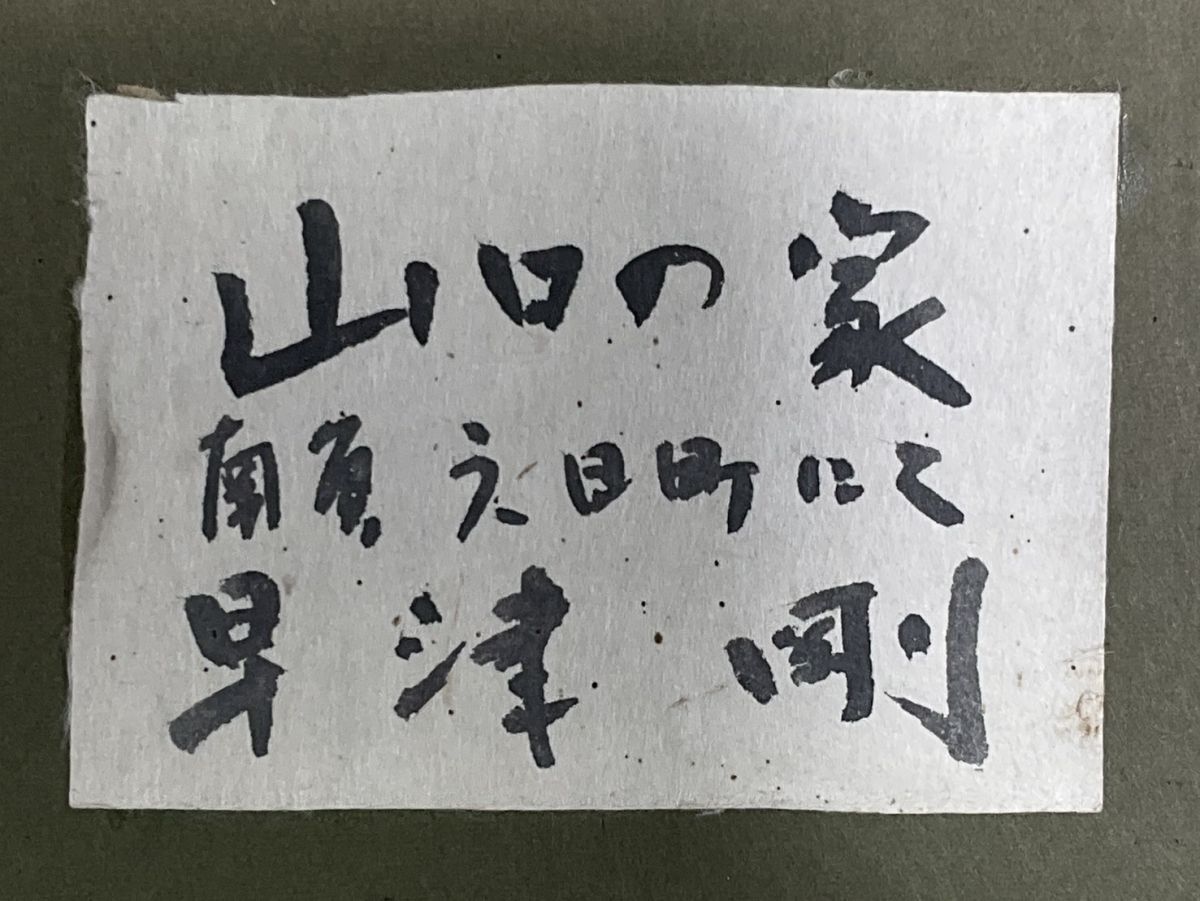 山口の家
南魚 六日町にて
早津 剛